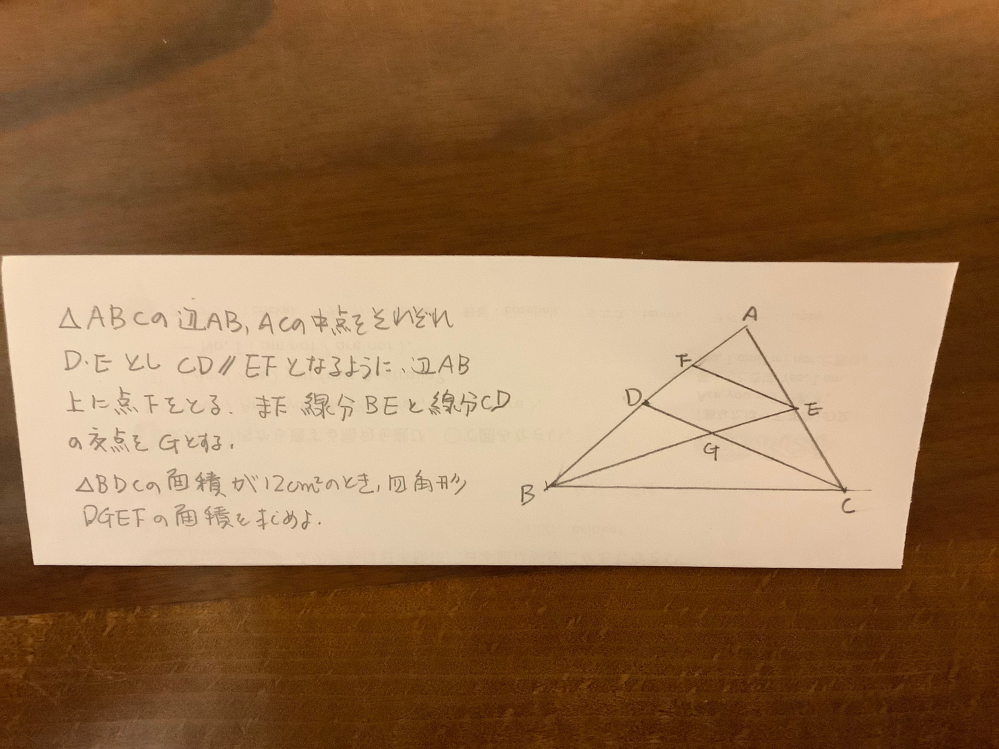 △ABCの辺AB, ACの中点をそれぞれ
D・EとしCD//EFとなるように、辺AB
上に点Fをとる. また線分BEと線分CD
の交点をGとする.
△BDCの面積が12cm²のとき, 四角形
DGEFの面積を求めよ.
A
F
D
E
G
B
C